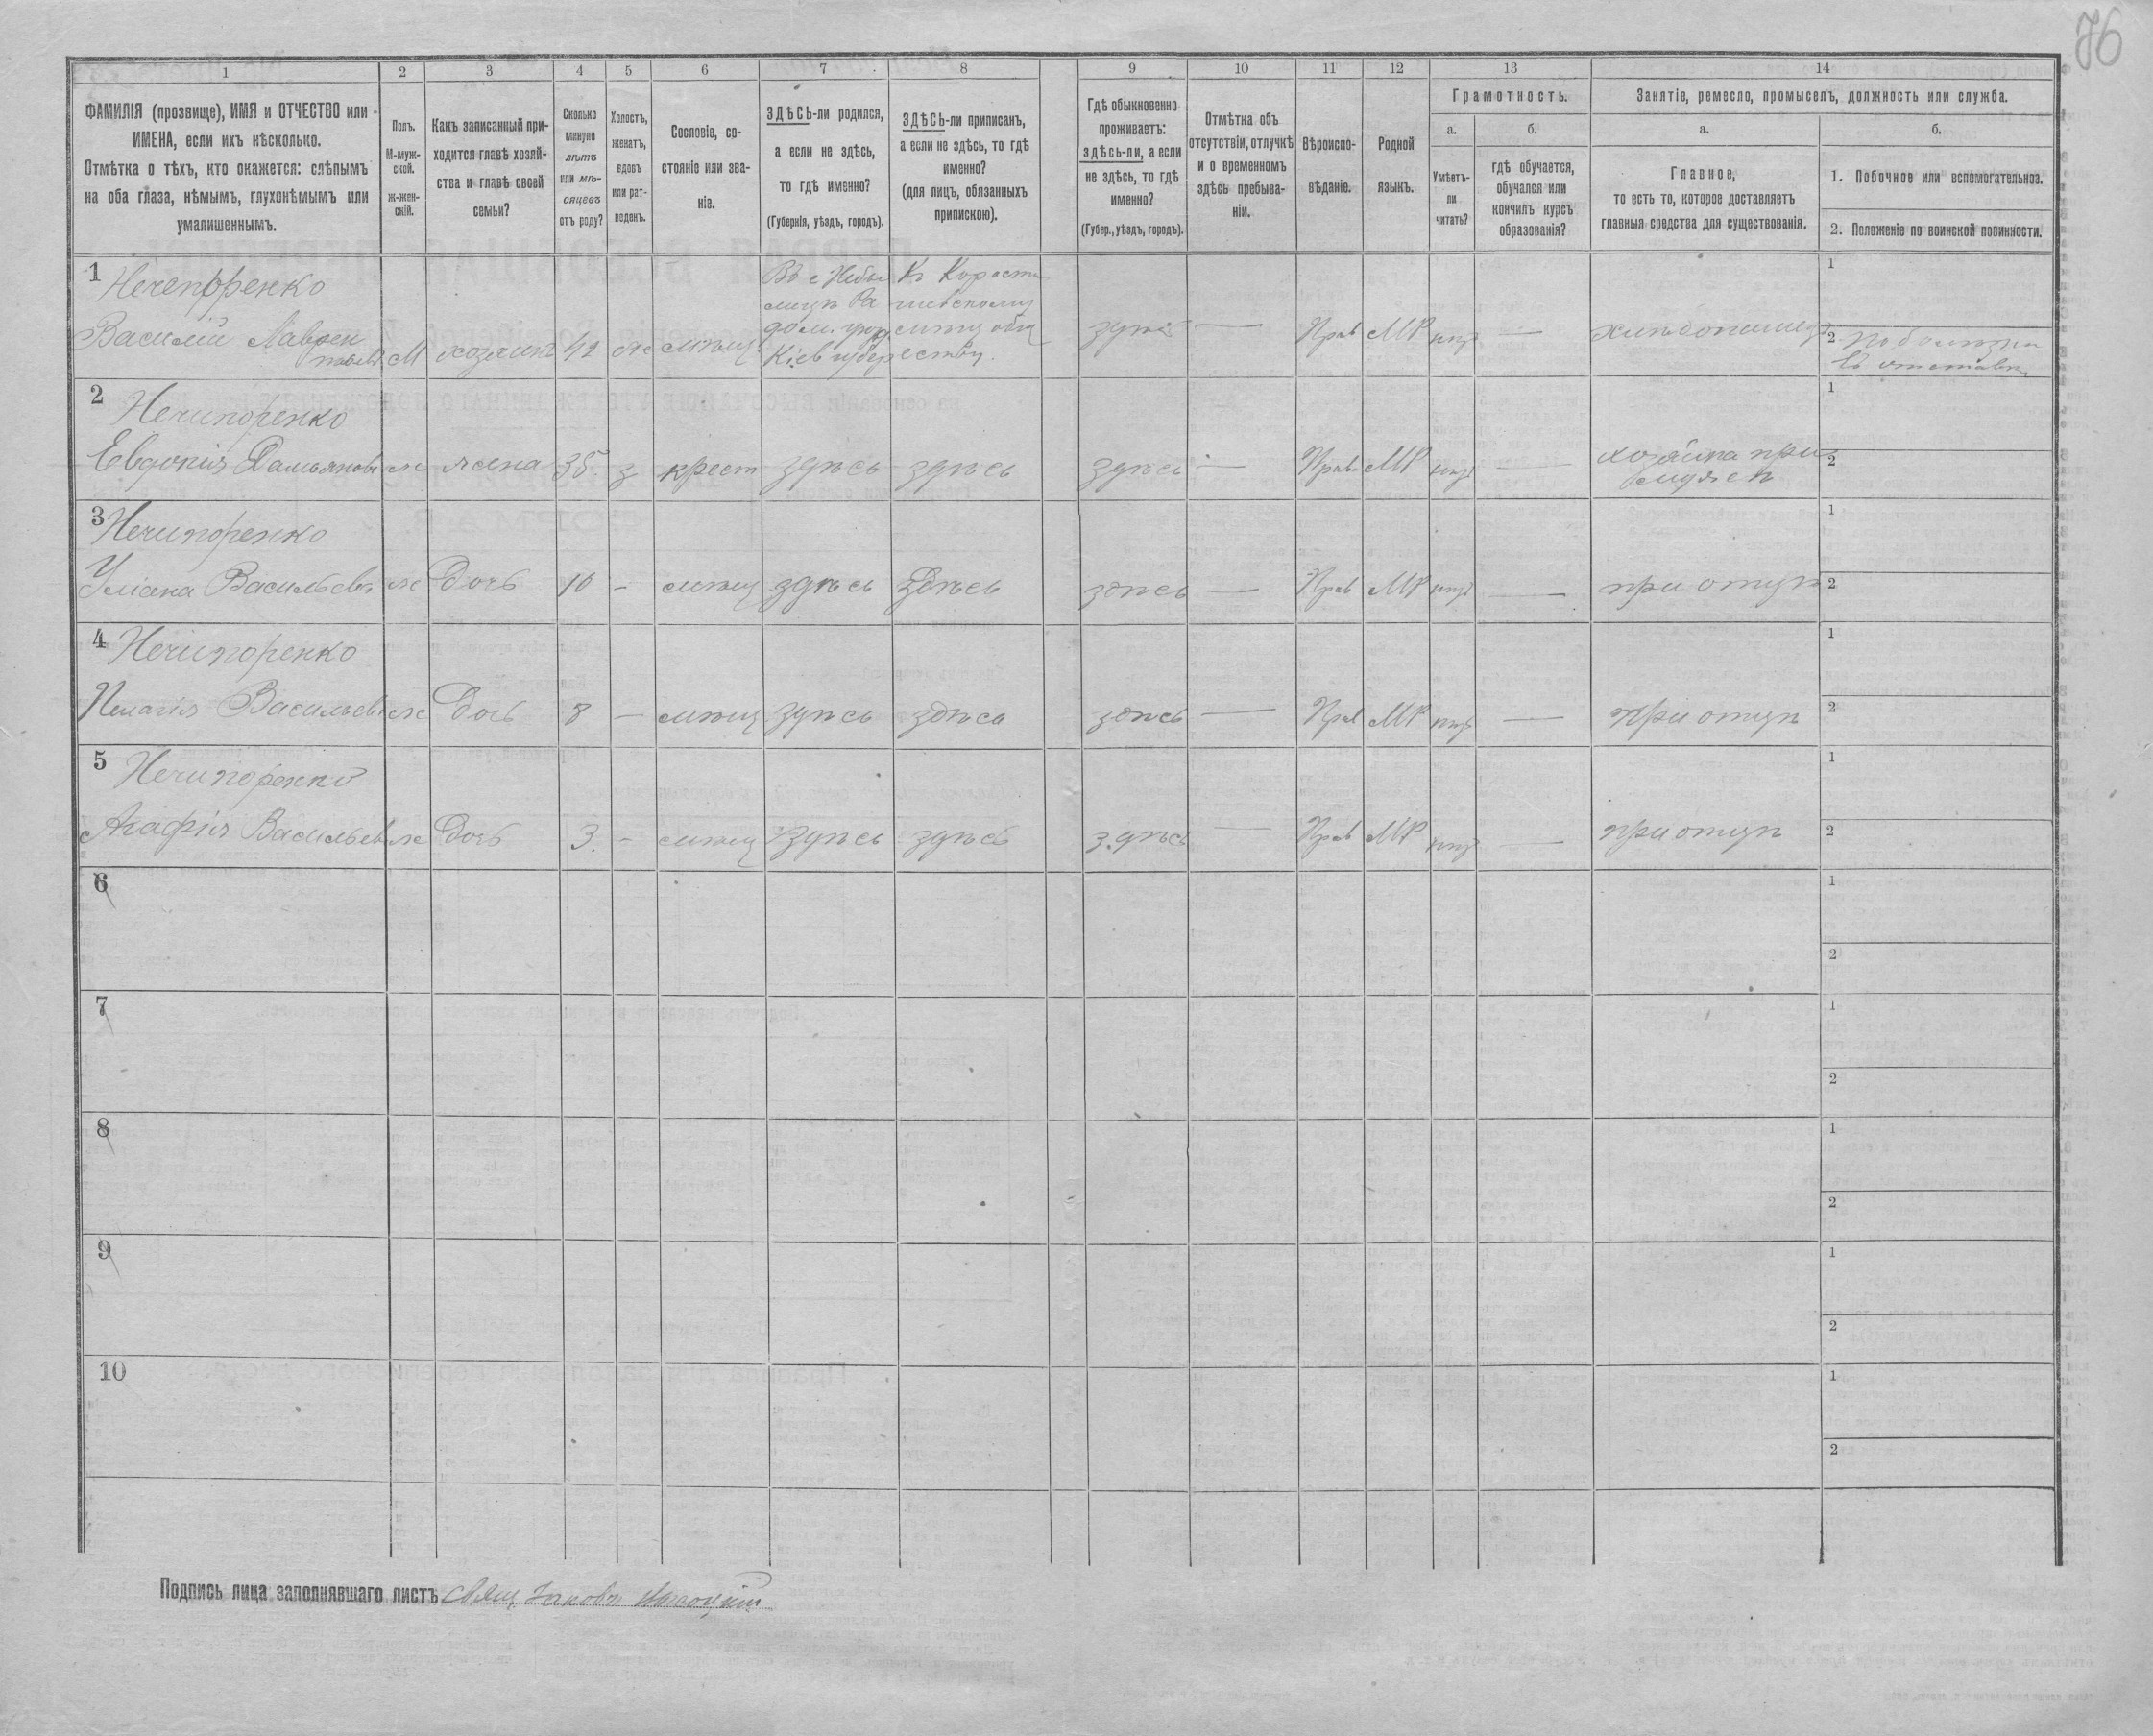 76
1 2 3 4 5 6 7 8 9 10 11 12 13 14
ФАМИЛІЯ (прозвище), ИМЯ и ОТЧЕСТВО или
ИМЕНА, если ихъ нѣсколько.
Отмѣтка о тѣхъ, кто окажется: слѣпымъ
на оба глаза, нѣмымъ, глухонѣмымъ или
умалишеннымъ.
Полъ.
М-муж-
ской.
ж-жен-
скій.
Какъ записанный при-
ходится главѣ хозяй-
ства и главѣ своей
семьи?
Сколько
минуло
лѣтъ
или мѣ-
сяцевъ
отъ роду?
Холостъ,
женатъ,
вдовъ
или раз-
веденъ.
Сословіе, со-
стояніе или зва-
ніе.
ЗДѢСЬ-ли родился,
а если не здѣсь,
то гдѣ именно?
(Губернія, уѣздъ, городъ).
ЗДѢСЬ-ли приписан,
а если не здѣсь, то гдѣ
именно?
(для лицъ, обязанныхъ
припискою).
Гдѣ обыкновенно
проживаетъ:
здѣсь-ли, а если
не здѣсь, то гдѣ
именно?
(Губер., уѣздъ, городъ).
Отмѣтка объ
отсутствіи, отлучкѣ
и о временномъ
здѣсь пребыва-
ніи.
Вѣроиспо-
вѣданіе.
Родной
языкъ.
Грамотность.
а.
Умѣетъ-
ли
читать?
б.
гдѣ обучается,
обучался или
кончилъ курсъ
образованія?
Занятіе, ремесло, промыселъ, должность или служба.
а.
Главное,
то есть то, которое доставляетъ
главныя средства для существованія.
б.
1. Побочное или вспомогательное.
2. Положеніе по воинской повинности.
1 Нечепоренко
Василій Лаврен
тьевъ М хозяинъ 42 ж мѣщ.
Въ с Небы
лицѣ Ра
дом. уѣзд
Кіев губер
Къ Корости
шевскому
мѣщ общ
еству.
— Прав МР нѣт — хлѣбопашец
1
2 По болѣзни
въ отставке
2 Нечипоренко
Евдокія Дамьянова ж жена 35. з крест здѣсь здѣсь здѣсь — Прав МР нѣт — хозяйка при
мужеѣ
1
2
3 Нечипоренко
Уліана Васильева ж дочь 10 - мѣщ здѣсь здѣсь здѣсь — Прав МР нѣт — при отцѣ
1
2
4 Нечипоренко
Пелагія Васильева ж дочь 8 — мѣщ здѣсь здѣсь здѣсь — Прав МР нѣт — при отцѣ
1
2
5 Нечипоренко
Агафія Васильева ж дочь 3. - мѣщ здѣсь здѣсь здѣсь — Прав МР нѣт — при отцѣ
1
2
6
1
2
7
1
2
8
1
2
9
1
2
10
1
2
Подпись лица заполнявшаго листъ свящ Іаковъ